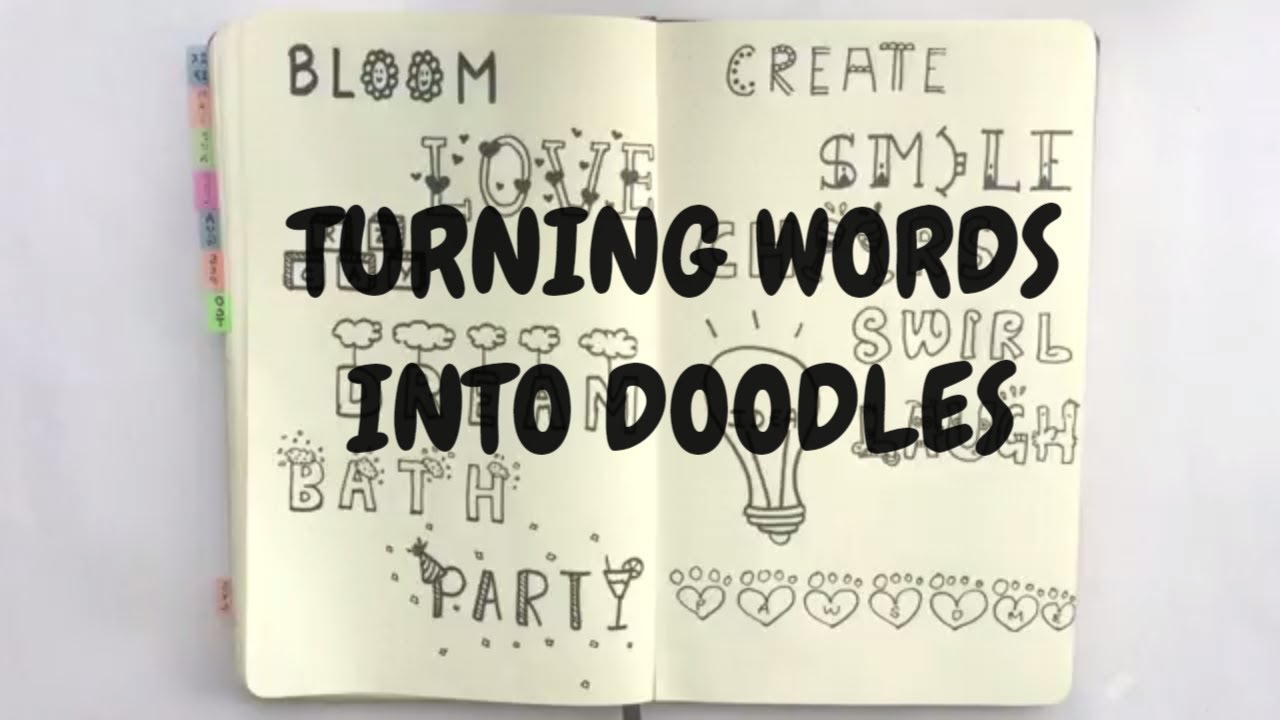 BLOOM
CREATE
LOVE
SMILE
TURNING WORDS
SWIRL
DREAM
INTO DOODLES
IDEA
LAUGH
BATH
PARTY
PAWSOME